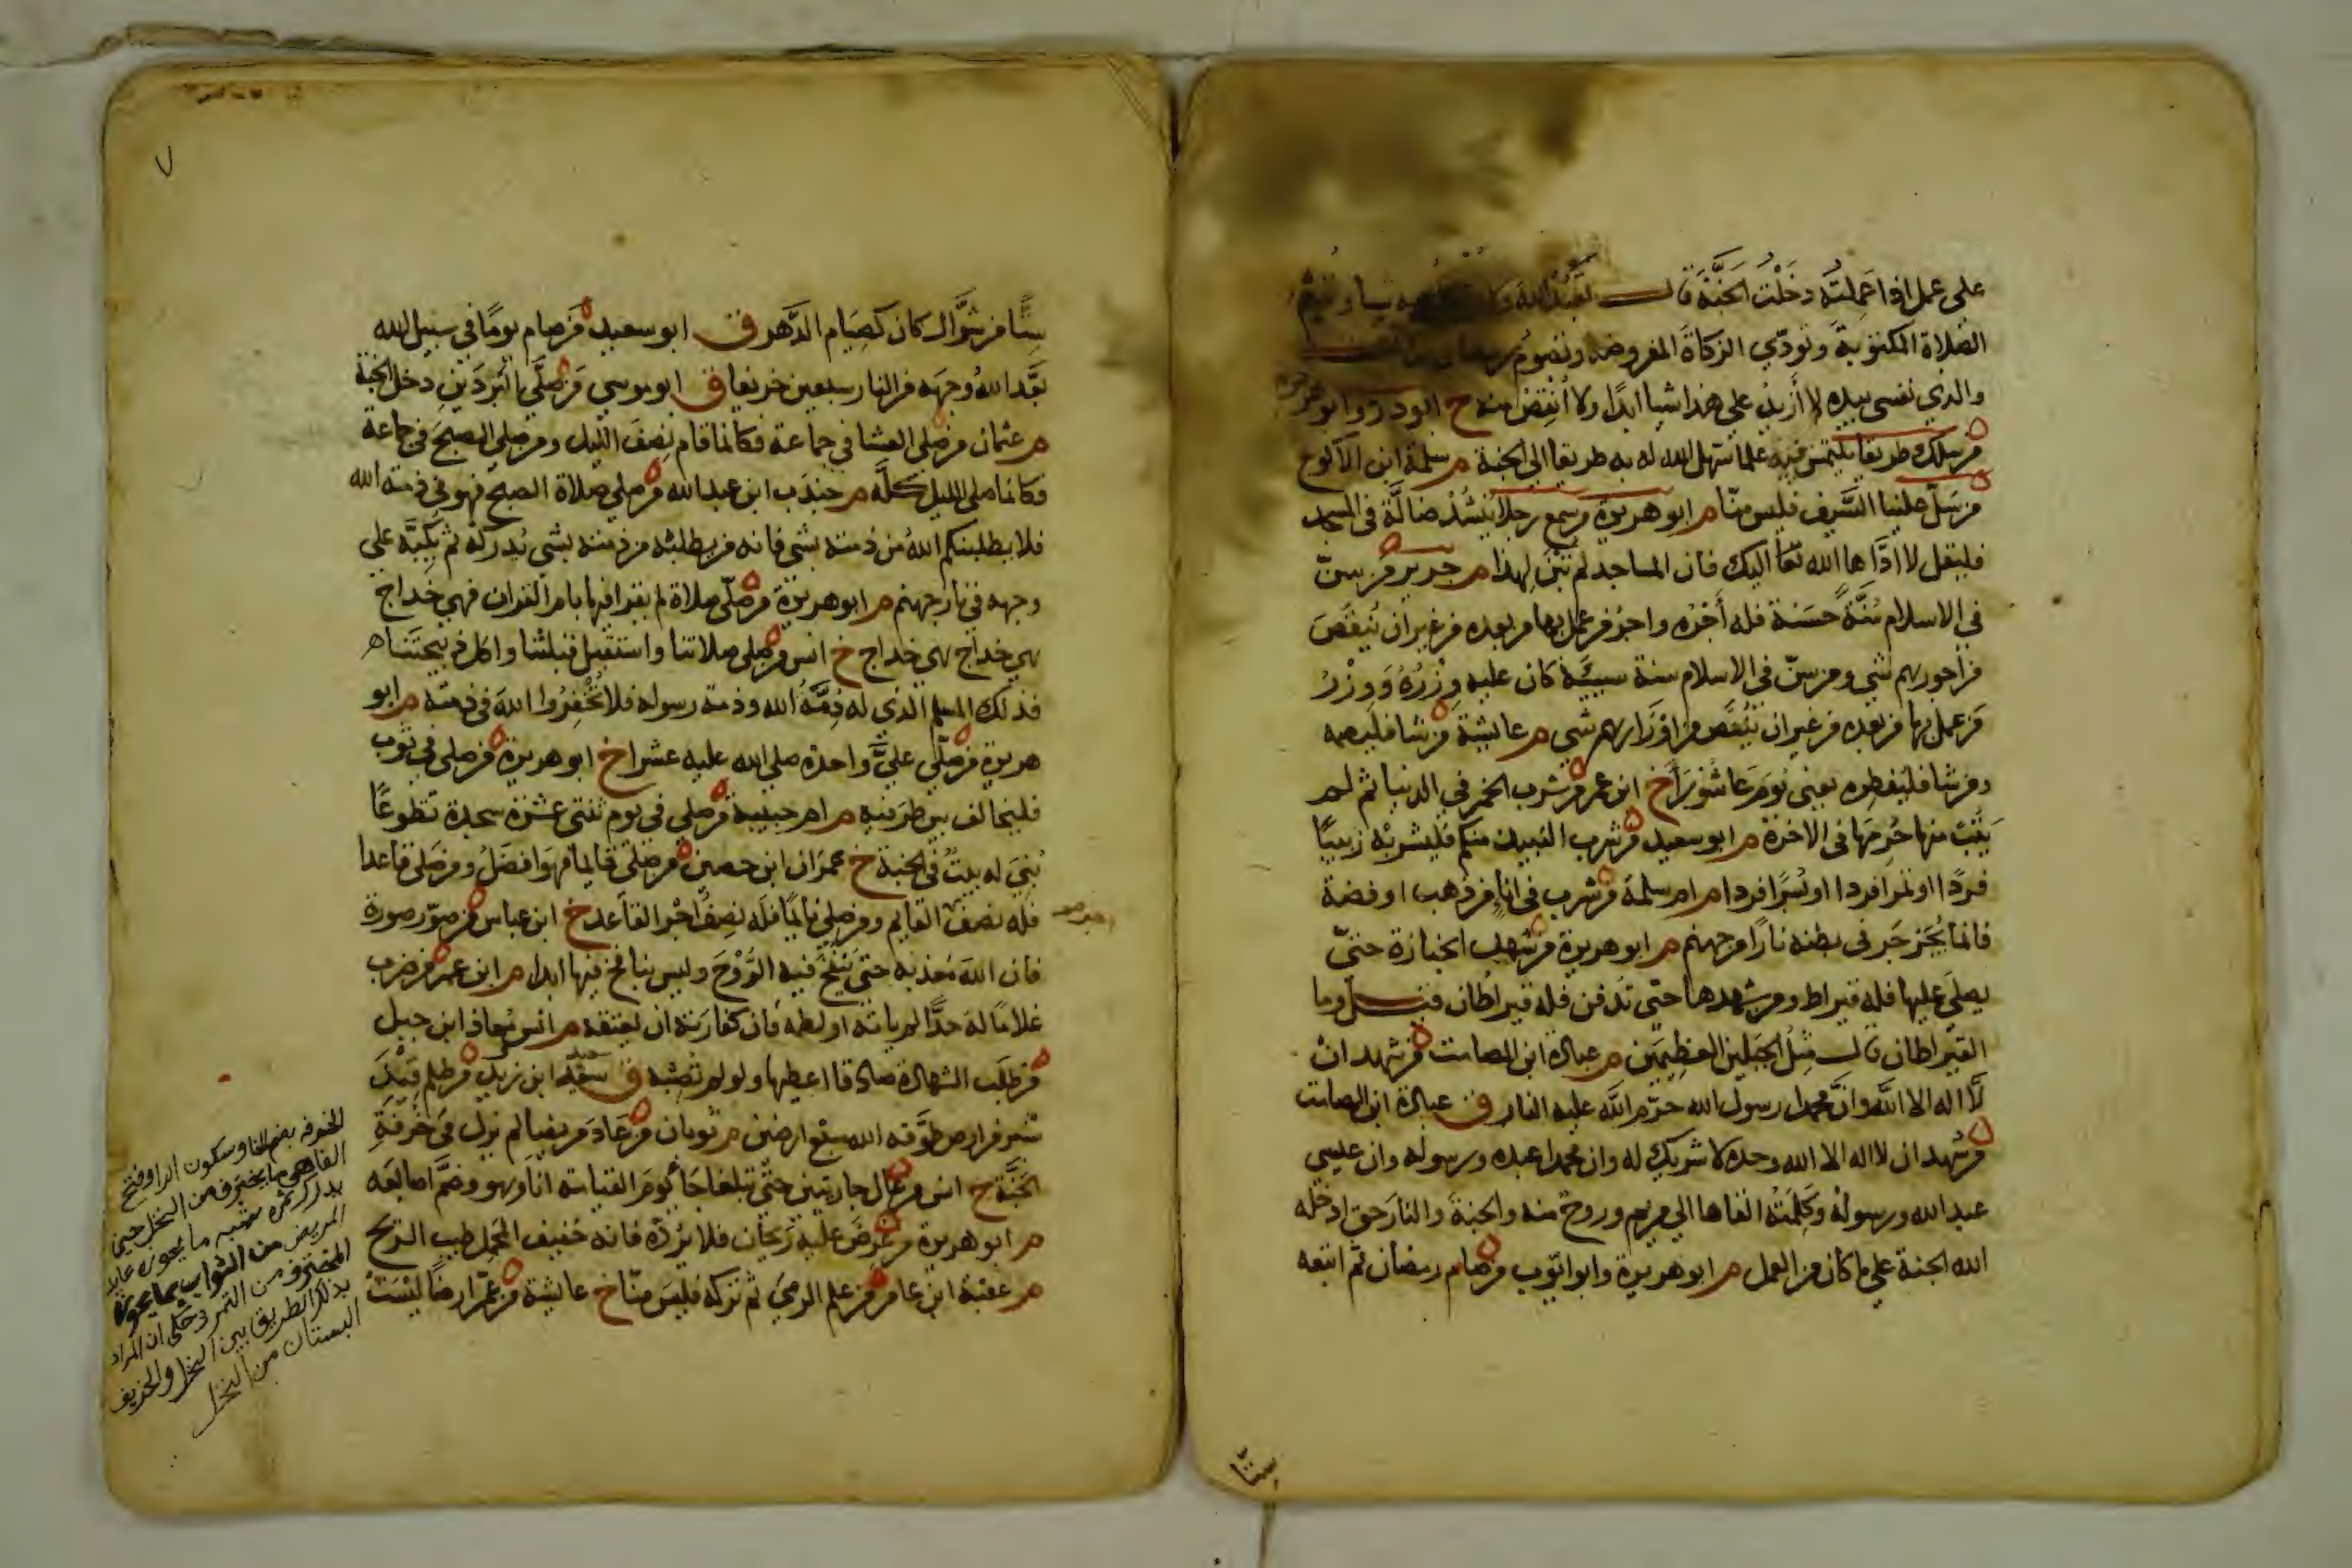 على عمل اذا عملته دخلت الجنة قال تعبد الله ولا به شيا وتقيم
الصلاة المكتوبة وتودي الزكاة المفروضه وتصوم رمضان
والدي نفسي بيده لا أزيد على هذا شيا ابدا ولا أنقص منه خ ابو ذر وابو هريرة
من سلك طريقا يلتمس فيه علما سهل الله له به طريقا الى الجنة م سلمة ابن الاكوع
من سل علينا السيف فليس منا م ابو هريرة من سمع رجلا ينشد ضالة في المسجد
فليقل لا ادّاها الله تعا اليك فان المساجد لم تبن لهذا م جرير من سنّ
في الاسلام سنة حسنة فله أجره واجر من عمل بها من بعده من غير ان ينقص
من اجورهم شي ومن سنّ في الاسلام سنة سيئة كان عليه وزره ووزر
من عمل بها من بعده من غير ان ينقص من اوزارهم شي م عايشة من شا فليصمه
ومن شا فليفطره يعني يوم عاشورا خ ابن عمر من شرب الخمر في الدنيا ثم لم
يتب منها حرمها في الاخرة م ابو سعيد من شرب النبيذ منكم فليشربه زبيبا
فردا او تمرا فردا او بسرا فردا م ام سلمة من شرب في اناء من ذهب او فضة
فانما يجرجر في بطنه نارا من جهنم م ابو هريرة من شهد الجنازة حتى
يصلى عليها فله قيراط ومن شهدها حتى تدفن فله قيراطان قيل وما
القيراطان قال مثل الجبلين العظيمين م عبادة ابن الصامت من شهد ان
لا اله الا الله وانّ محمدا رسول الله حرّم الله عليه النار ق عبادة ابن الصامت
من شهد ان لا اله الا الله وحده لا شريك له وان محمدا عبده ورسوله وان عيسي
عبد الله ورسوله وكلمته القاها الي مريم وروح منه والجنة والنار حق ادخله
الله الجنة علي ما كان من العمل م ابو هريرة وابو ايّوب من صام رمضان ثم اتبعه
ستا من شوال كان كصيام الدهر ق ابو سعيد من صام يوما في سبيل الله
بعّد الله وجهه من النار سبعين خريفا ق ابو موسي من صلّي البردين دخل الجنة
م عثمان من صلي العشا في جماعة فكانما قام نصف الليل ومن صلي الصبح في جماعة
فكانما صلى الليل كله م جندب ابن عبد الله من صلي صلاة الصبح فهو في ذمة الله
فلا يطلبنكم الله من ذمته بشي فانه من يطلبه من ذمته بشي يدركه ثم يكبّه على
وجهه في نار جهنم م ابو هريرة من صلّى صلاة لم يقرا فيها بام القران فهي خداج
هي خداج هي خداج خ انس من صلي صلاتنا واستقبل قبلتنا واكل ذبيحتنا
فذلك المسلم الذي له ذمّة الله وذمة رسوله فلا تخفروا الله في ذمته م ابو
هريرة من صلّي عليّ واحدة صلي الله عليه عشرا خ ابو هريرة من صلى في ثوب
فليخالف بين طرفيه م ام حبيبة من صلي في يوم ثنتي عشرة سجدة تطوعا
بني له بيت في الجنة خ عمران ابن حصين من صلى قايما فهو افضل ومن صلى قاعدا
فله نصف القايم ومن صلى نايما فله نصف اجر القاعد خ ابن عباس من صوّر صورة
فان الله معذبه حتى ينفخ فيه الروح وليس بنافخ فيها ابدا م ابن عمر من ضرب
غلاما له حدّا لم ياته او لطمه فان كفارته ان يعتقه م انس
من طلب الشهادة صادقا اعطيها ولو لم تصبه ق سعيد ابن زيد من ظلم قيد
شبر من ارض طوّقه الله سبع ارضين م ثوبان من عاد مريضا لم يزل في خرفة
الجنة خ انس من عال جاريتين حتى تبلغا جا يوم القيامة انا وهو وضمّ اصابعه
م ابو هريرة من عرض عليه ريحان فلا يردّه فانه خفيف المحمل طيب الريح
م عقبة ابن عامر من علم الرمي ثم تركه فليس منّا خ عايشة من عمّر ارضا ليست
الخرفة بضم الخا وسكون الرا وفتح
الفا هي ما يخترف من النخل حين
يدرك ثمره شبه ما يحوزه عايد
المريض من الثواب بما يحوزه
المخترف من التمر وحكى ان المراد
بذلك الطريق بين النخل والخريف
البستان من النخل